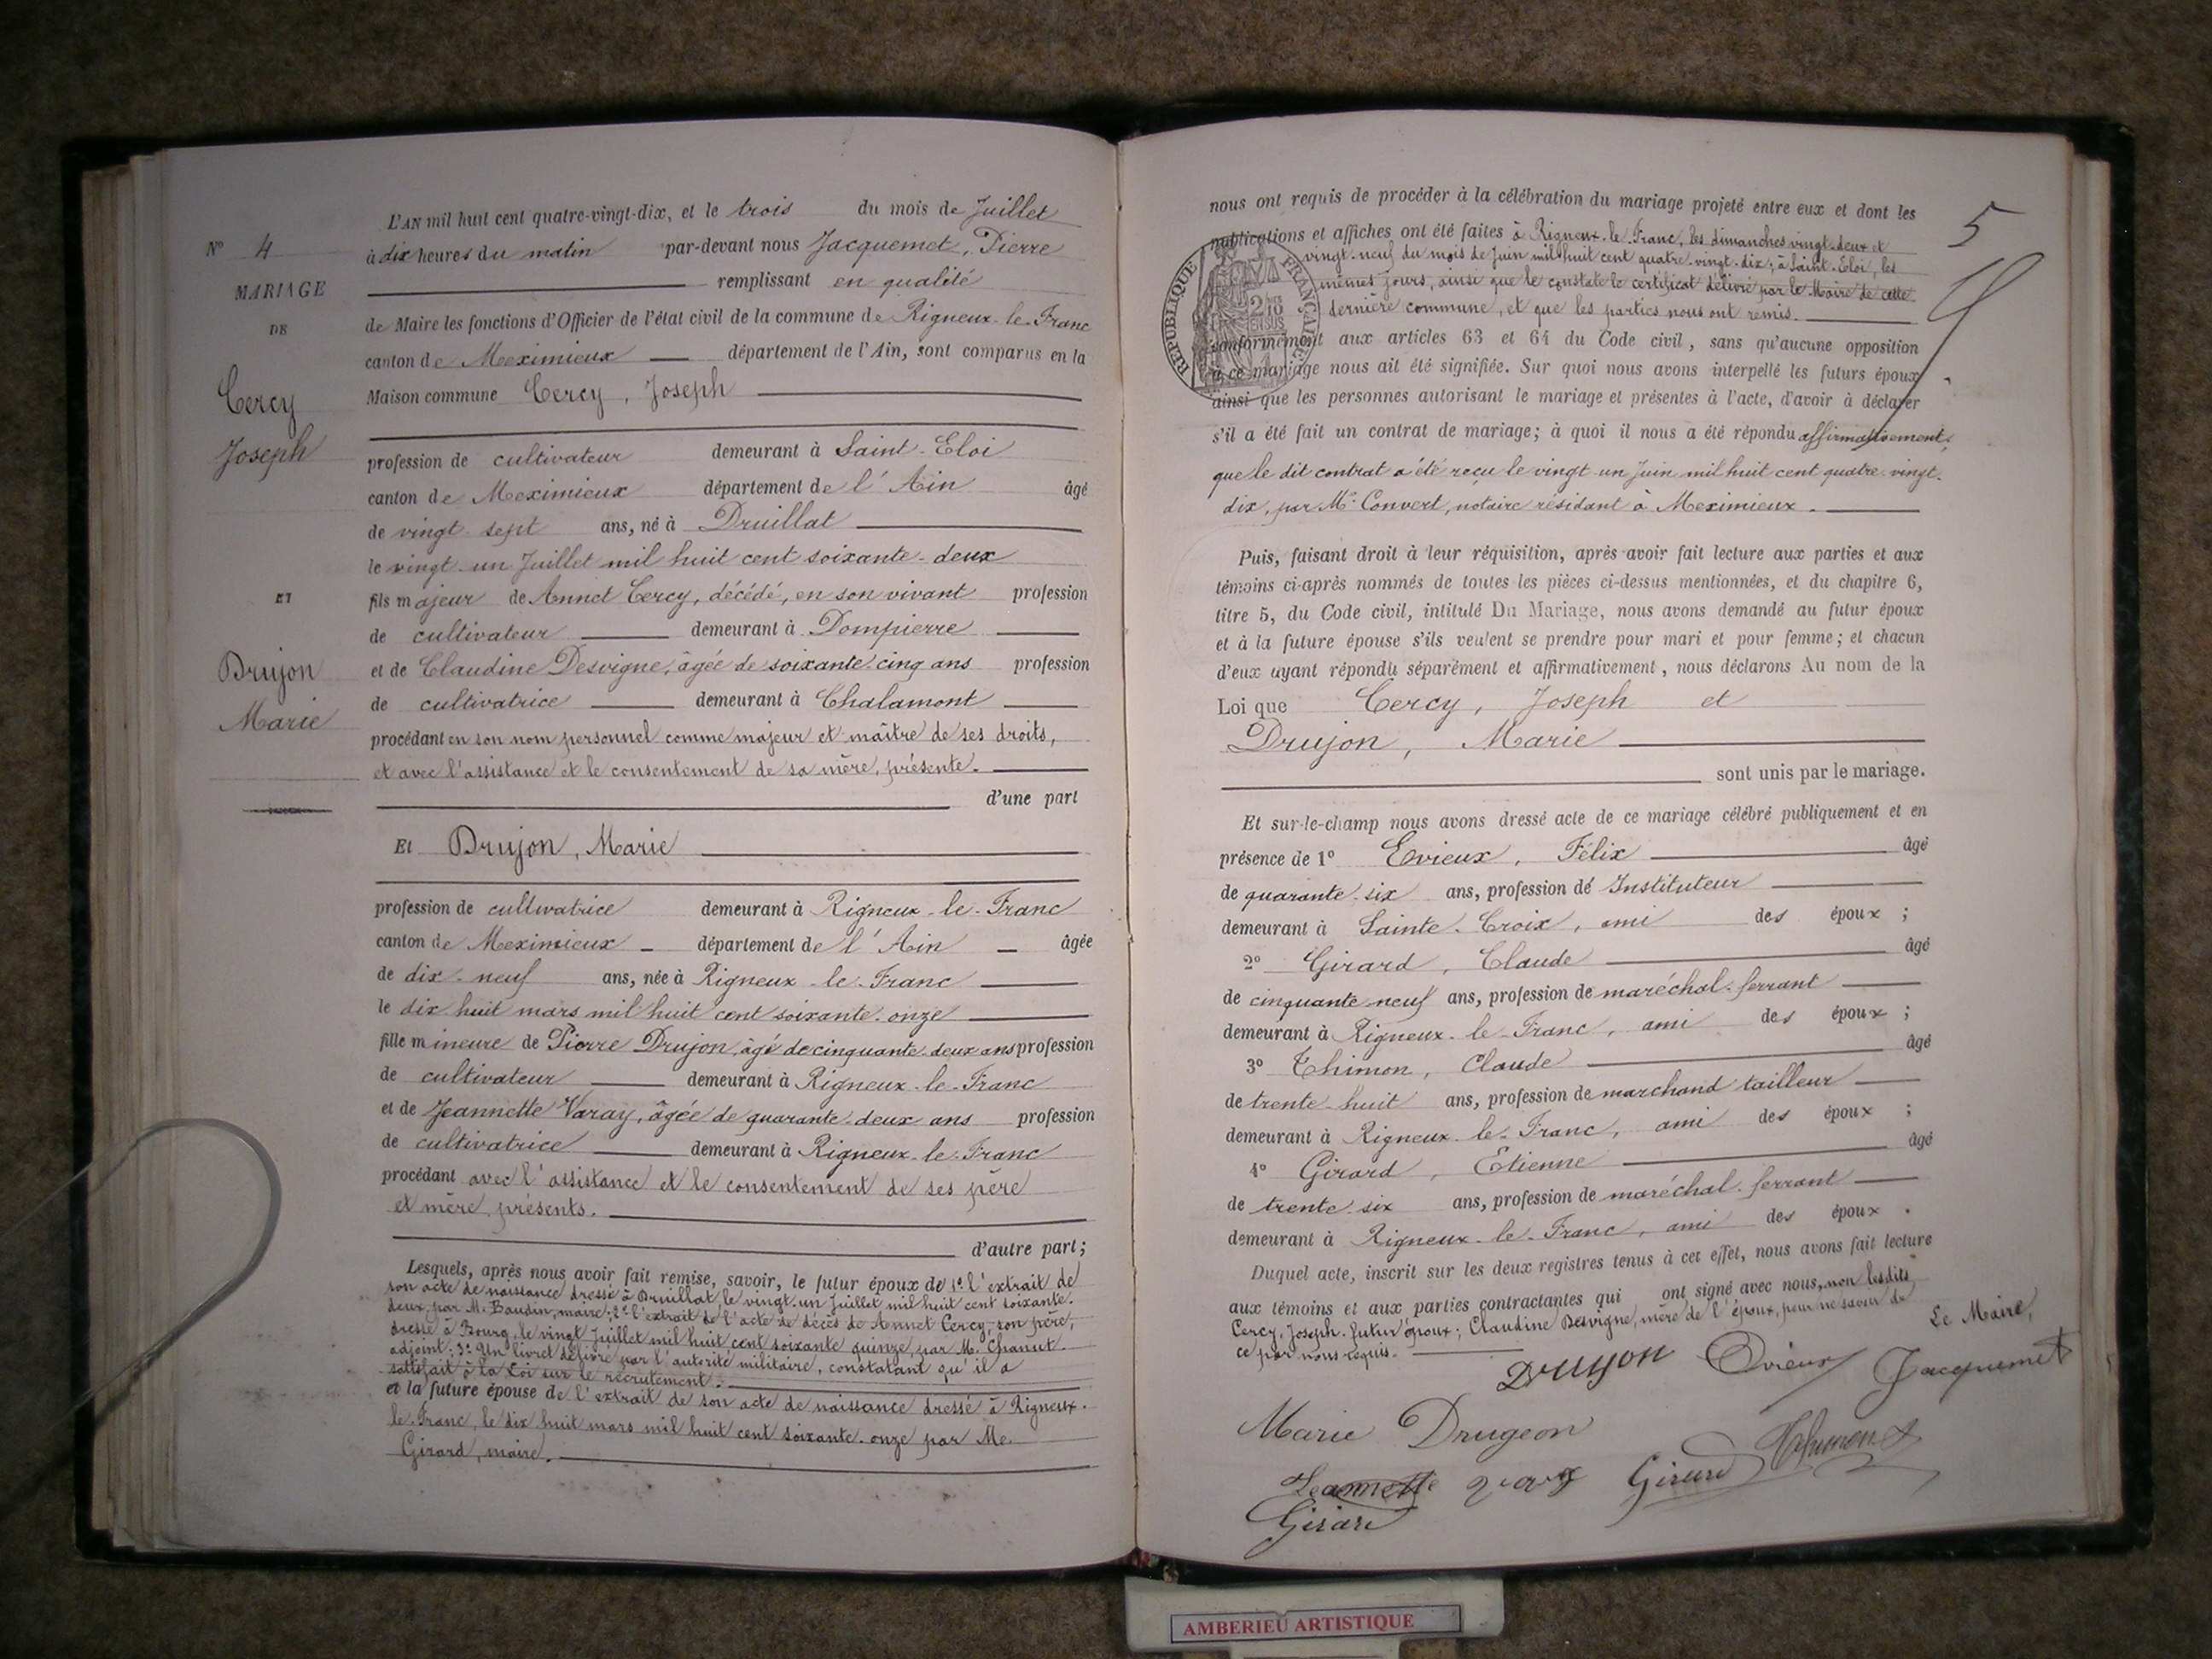 L'AN mil huit cent quatre-vingt-dix, et le trois du mois de Juillet
N° 4
à dix heures du matin par-devant nous Jacquemet, Pierre
MARIAGE
remplissant en qualité
DE
de Maire les fonctions d'Officier de l'état civil de la commune de Rigneux-le-Franc
canton de Meximieux département de l'Ain, sont comparus en la
Cercy
Maison commune Cercy, Joseph
Joseph
profession de cultivateur demeurant à Saint-Eloi
canton de Meximieux département de l'Ain âgé
de vingt-sept ans, né à Druillat
le vingt-un Juillet mil huit cent soixante-deux
ET
fils majeur de Annet Cercy, décédé, en son vivant profession
de cultivateur demeurant à Dompierre
Drujon
et de Claudine Desvigne, âgée de soixante-cinq ans profession
Marie
de cultivatrice demeurant à Chalamont
procédant en son nom personnel comme majeur et maître de ses droits,
et avec l'assistance et le consentement de sa mère, présente.
d'une part
Et Drujon, Marie
profession de cultivatrice demeurant à Rigneux-le-Franc
canton de Meximieux département de l'Ain âgée
de dix-neuf ans, née à Rigneux-le-Franc
le dix-huit mars mil huit cent soixante-onze
fille mineure de Pierre Drujon, âgé de cinquante-deux ans profession
de cultivateur demeurant à Rigneux-le-Franc
et de Jeannette Varay, âgée de quarante-deux ans profession
de cultivatrice demeurant à Rigneux-le-Franc
procédant avec l'assistance et le consentement de ses père
et mère, présents.
d'autre part;
Lesquels, après nous avoir fait remise, savoir, le futur époux de 1° l'extrait de
son acte de naissance dressé à Druillat, le vingt-un Juillet mil huit cent soixante-
deux, par M. Baudin, maire; 2° l'extrait de l'acte de décès de Annet Cercy, son père,
dressé à Bourg, le vingt Juillet mil huit cent soixante quinze, par M. Chanut
adjoint; 3° Un livret délivré par l'autorité militaire, constatant qu'il a
satisfait à la Loi sur le recrutement.
et la future épouse de l'extrait de son acte de naissance dressé à Rigneux-
le-Franc, le dix-huit mars mil huit cent soixante-onze par Me
Girard, maire.
5
nous ont requis de procéder à la célébration du mariage projeté entre eux et dont les
publications et affiches ont été faites à Rigneux-le-Franc, les dimanches vingt-deux et
vingt-neuf du mois de Juin mil huit cent quatre-vingt-dix; à Saint-Eloi, les
mêmes jours, ainsi que le constate le certificat délivré par le Maire de cette
dernière commune, et que les parties nous ont remis.
REPUBLIQUE FRANÇAISE
conformément aux articles 63 et 64 du Code civil, sans qu'aucune opposition
à ce mariage nous ait été signifiée. Sur quoi nous avons interpellé les futurs époux
ainsi que les personnes autorisant le mariage et présentes à l'acte, d'avoir à déclarer
s'il a été fait un contrat de mariage; à quoi il nous a été répondu affirmativement,
que le dit contrat a été reçu le vingt un Juin mil huit cent quatre-vingt-
dix, par Me Convert, notaire résidant à Meximieux.
Puis, faisant droit à leur réquisition, après avoir fait lecture aux parties et aux
témoins ci-après nommés de toutes les pièces ci-dessus mentionnées, et du chapitre 6,
titre 5, du Code civil, intitulé Du Mariage, nous avons demandé au futur époux
et à la future épouse s'ils veulent se prendre pour mari et pour femme; et chacun
d'eux ayant répondu séparément et affirmativement, nous déclarons Au nom de la
Loi que Cercy, Joseph et
Drujon, Marie
sont unis par le mariage.
Et sur-le-champ nous avons dressé acte de ce mariage célébré publiquement et en
présence de 1° Evieux, Félix âgé
de quarante-six ans, profession de Instituteur
demeurant à Sainte-Croix, ami des époux;
2° Girard, Claude âgé
de cinquante-neuf ans, profession de maréchal-ferrant
demeurant à Rigneux-le-Franc, ami des époux;
3° Thimon, Claude âgé
de trente-huit ans, profession de marchand tailleur
demeurant à Rigneux-le-Franc, ami des époux;
4° Girard, Etienne âgé
de trente-six ans, profession de maréchal-ferrant
demeurant à Rigneux-le-Franc, ami des époux.
Duquel acte, inscrit sur les deux registres tenus à cet effet, nous avons fait lecture
aux témoins et aux parties contractantes qui ont signé avec nous, non lesdits
Cercy, Joseph, futur époux; Claudine Desvigne, mère de l'époux, pour ne savoir de
ce par nous requis.
Le Maire,
Drujon Evieux Jacquemet
Marie Drugeon
Thimon
Jeannette Varay Girard
Girard
AMBERIEU ARTISTIQUE